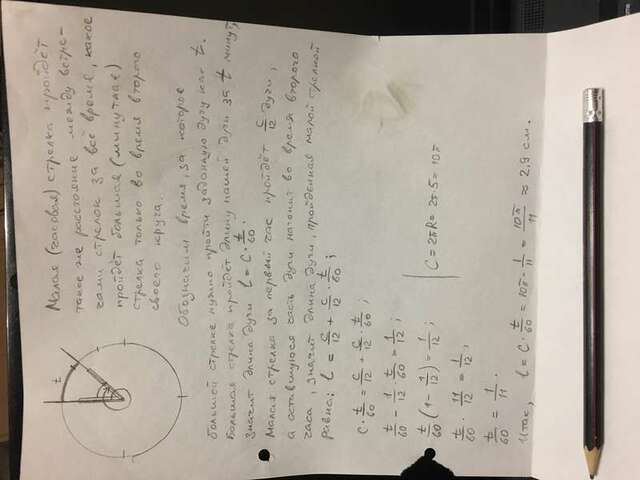 t
Малая (часовая) стрелка пройдёт
такое же расстояние между встре-
чами стрелок за всё время, какое
пройдёт большая (минутная)
стрелка только во время второго
своего круга.
Обозначим время, за которое
большой стрелке нужно пройти заданную дугу как t.
Большая стрелка пройдёт длину нашей дуги за t минут,
значит длина дуги l = C · t/60.
Малая стрелка за первый час пройдёт C/12 дуги,
а оставшуюся часть дуги нагонит во время второго
часа, значит длина дуги, пройденная малой стрелкой
равна: l = C/12 + C/12 · t/60;
C · t/60 = C/12 + C/12 · t/60;
t/60 - 1/12 · t/60 = 1/12;
t/60 (1 - 1/12) = 1/12;
C = 2πR = 2π·5 = 10π
t/60 · 11/12 = 1/12,
t/60 = 1/11.
Итак, l = C · t/60 = 10π · 1/11 = 10π/11 ≈ 2,9 см.